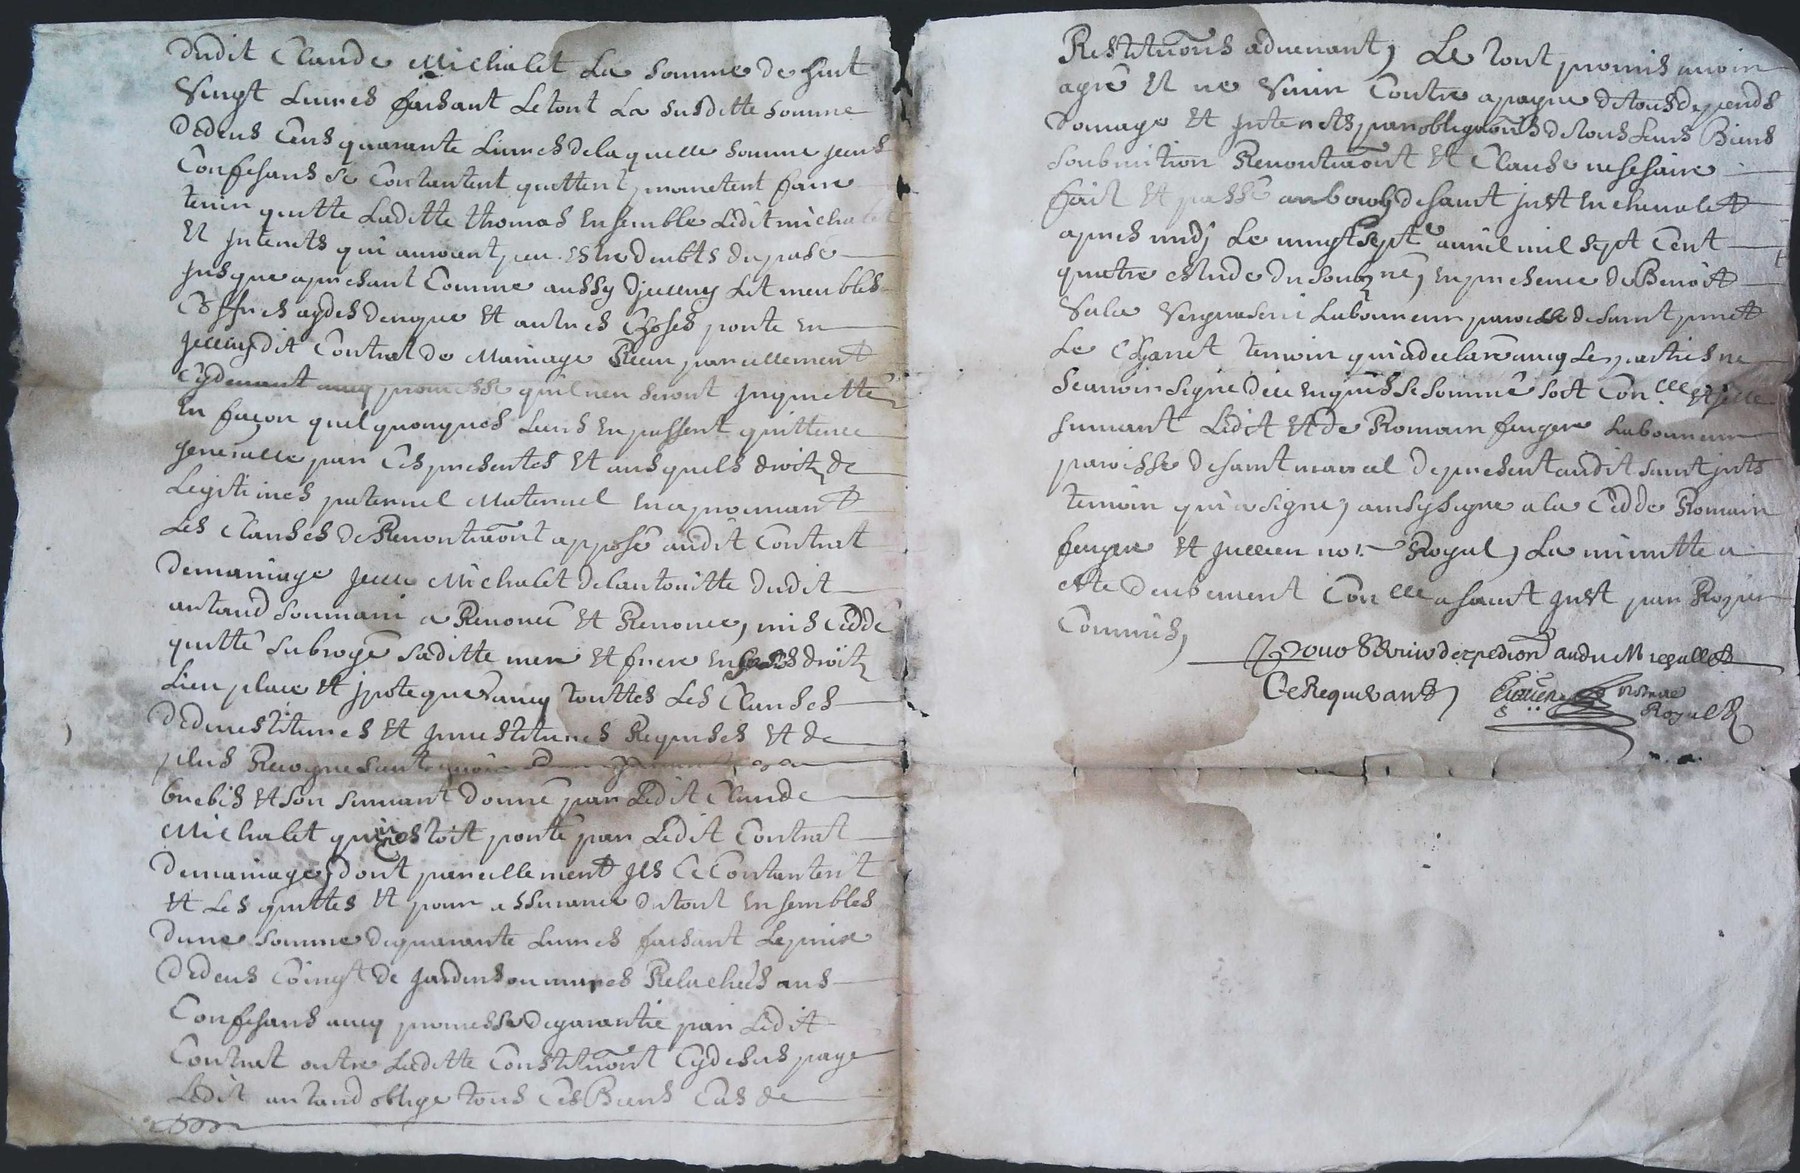 dudit Claude Michalet La somme de huit
Vingt Livres faisant Le tout La susditte somme
Dedeus Cens quarante Livres de laquelle somme jceus
Confesans se Contantent quittent promettent faire
tenir quitte Laditte thomas Ensemble Ledit michalet
Et jnterets qui auroient peu estre deubts du pase
jusque apresant Comme aussy djceluy Lit meubles
Coffres aydes denope Et autres Choses porte En
jceluydit Contrat de Mariage Receu pareillement
Cydevant aveq promesse quil nen seront jnquietté
En façon quelquonques Leurs En passent quittence
generalle par Ces presentes Et ausquels droitz de
Legitimes paternel Maternel En aprouvant
Les Clauses de Renontiaõnt apposé audit Contrat
demariage jcelle Michalet de Lautoritte dudit
autand son mari a Renoncé Et Renonce, mis Cedde
quitté subrogé saditte mere Et frere En ses droitz
Lieu place Et jpoteque aveq touttes Les Clauses
Dedevestitures Et jnvestitures Requises Et de
plus Recognesant
brebis Et son suivant donné par Ledit Claude
Michalet qui Estoit porté par Ledit Contrat
demariage, dont pareillement jls Ce Contantent
Et Les quittes Et pour assurance dutout Ensembles
dune somme de quarante Livres faisant Le prix
Dedeus de jardins Relachés aus
Confesans aveq promesse de garantie par Ledit
Contrat outre Laditte Constituõnt Cydesus paye
Ledit autand oblige tous Ces Biens Cas de
Restituõns aduenant, Le tout promis avoir
agré Et ne Venir Contre apayne detous depends
domage Et jnterets, par obligaõns de tous Leurs Biens
soubmition Renontiaõnt Et Clause nesesaire
fait Et passé aubourg de saint just En chevalet
apres midj Le vingt sept.e avril mil sept Cent
quatre Estude du soubz.né, En presence de Benoit
Laboureur paroisse de saint priest
Le temoin qui a declaré aveq Les parties ne
scauoir signé de ce Enquis se somme soit Con.lle Et selle
suivant Ledit Et de Romain fougere Laboureur
paroisse de saint marcel depresent audit saint just
temoin qui a signé, ainsy signé a la Cedde Romain
fougere Et jullien nor. Royal, La minutte a
Este deubement Con.lle a saint just par Rozier
Commis,
audit Michallet
Ce Requerant,
notaire
Royall